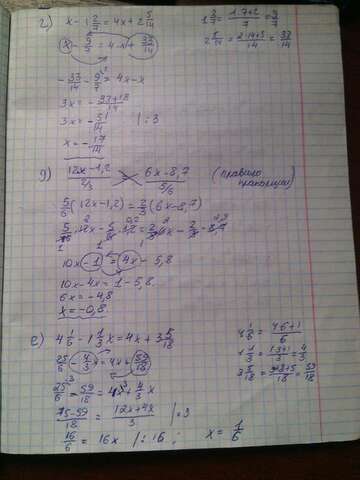 г) x - 1 2/7 = 4x + 2 5/14
1 2/7 = (1·7+2)/7 = 9/7
x - 9/7 = 4·x + 33/14
2 5/14 = (2·14+5)/14 = 33/14
- 33/14 - 9/7 = 4x - x
3x = - (33+18)/14
3x = - 51/14 | : 3
x = - 17/14
д) (12x-1,2)/(2/3) (6x-8,7)/(5/6) (правило пропорции)
5/6 (12x-1,2) = 2/3 (6x-8,7)
5/6 · 12x - 5/6 · 1,2 = 2/3 · 6x - 2/3 · 8,7
10x - 1 = 4x - 5,8
10x - 4x = 1 - 5,8
6x = -4,8
x = -0,8
е) 4 1/6 - 1 1/3 x = 4x + 3 5/18
4 1/6 = (4·6+1)/6
25/6 - 4/3 x = 4x + 59/18
1 1/3 = (1·3+1)/3 = 4/3
25/6 - 59/18 = 4x + 4/3 x
3 5/18 = (3·18+5)/18 = 59/18
(75-59)/18 = (12x+4x)/3 | · 3
16/6 = 16x | : 16 ; x = 1/6